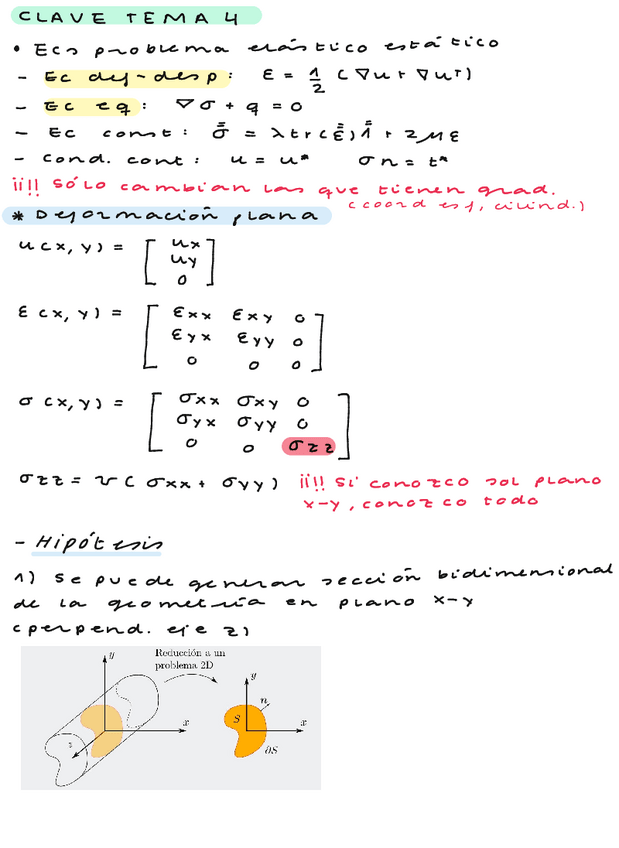 CLAVE TEMA 4
• Ecs problema elástico estático
- Ec def-desp: ε = 1/2 (∇u + ∇uᵀ)
- Ec eq: ∇σ + q = 0
- Ec const: σ̿ = λtr(ε̿)1̿ + 2με
- Cond. cont: u = u* σn = t*
¡¡!! Sólo cambian las que tienen grad.
(coord esf, cilind.)
* Deformación plana
u(x, y) = [ux
uy
0]
ε(x, y) = [εxx εxy 0
εyx εyy 0
0 0 0]
σ(x, y) = [σxx σxy 0
σyx σyy 0
0 0 σzz]
σzz = ν(σxx + σyy) ¡¡!! Si conozco sol plano
x-y, conozco todo
- Hipótesis
1) Se puede generar sección bidimensional
de la geometría en plano x-y
(perpend. eje z)
Reducción a un
problema 2D
y
x
z
y
n
S
x
∂S